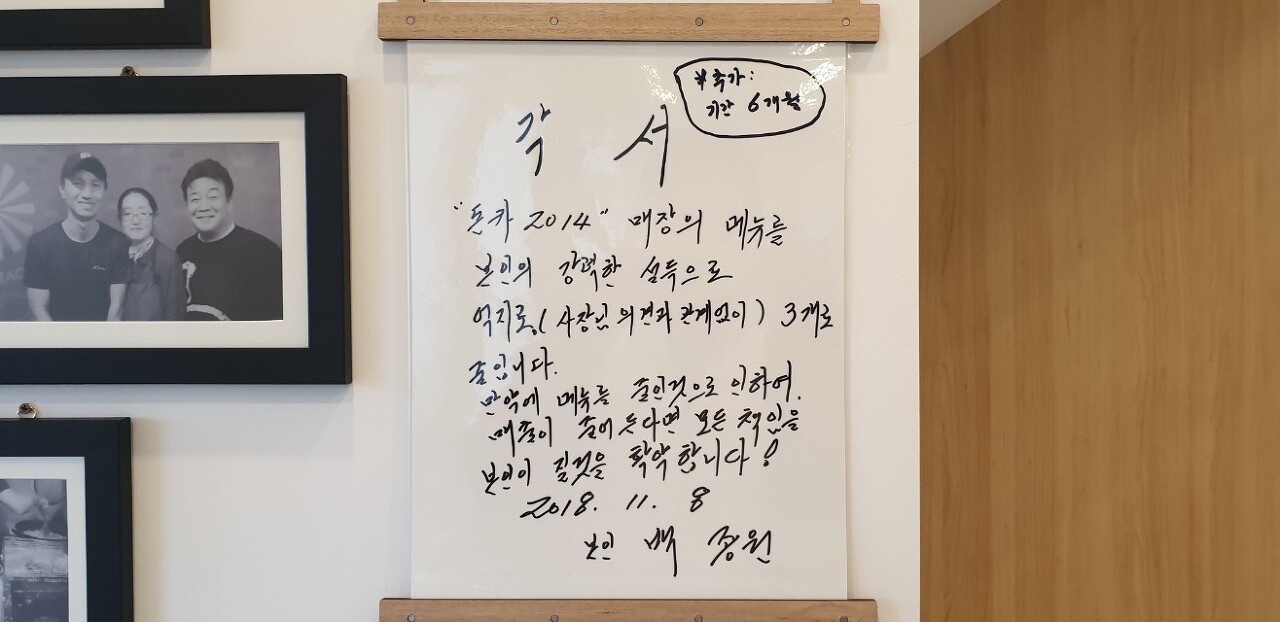 *추가:
기간 6개월
각 서
"돈카 2014" 매장의 메뉴를
본인의 강력한 설득으로
억지로,(사장님 의견과 관계없이) 3개로
줄입니다.
만약에 메뉴를 줄인것으로 인하여.
매출이 줄어든다면 모든 책임을
본인이 질것을 확약합니다!
2018. 11. 8
본인 백종원